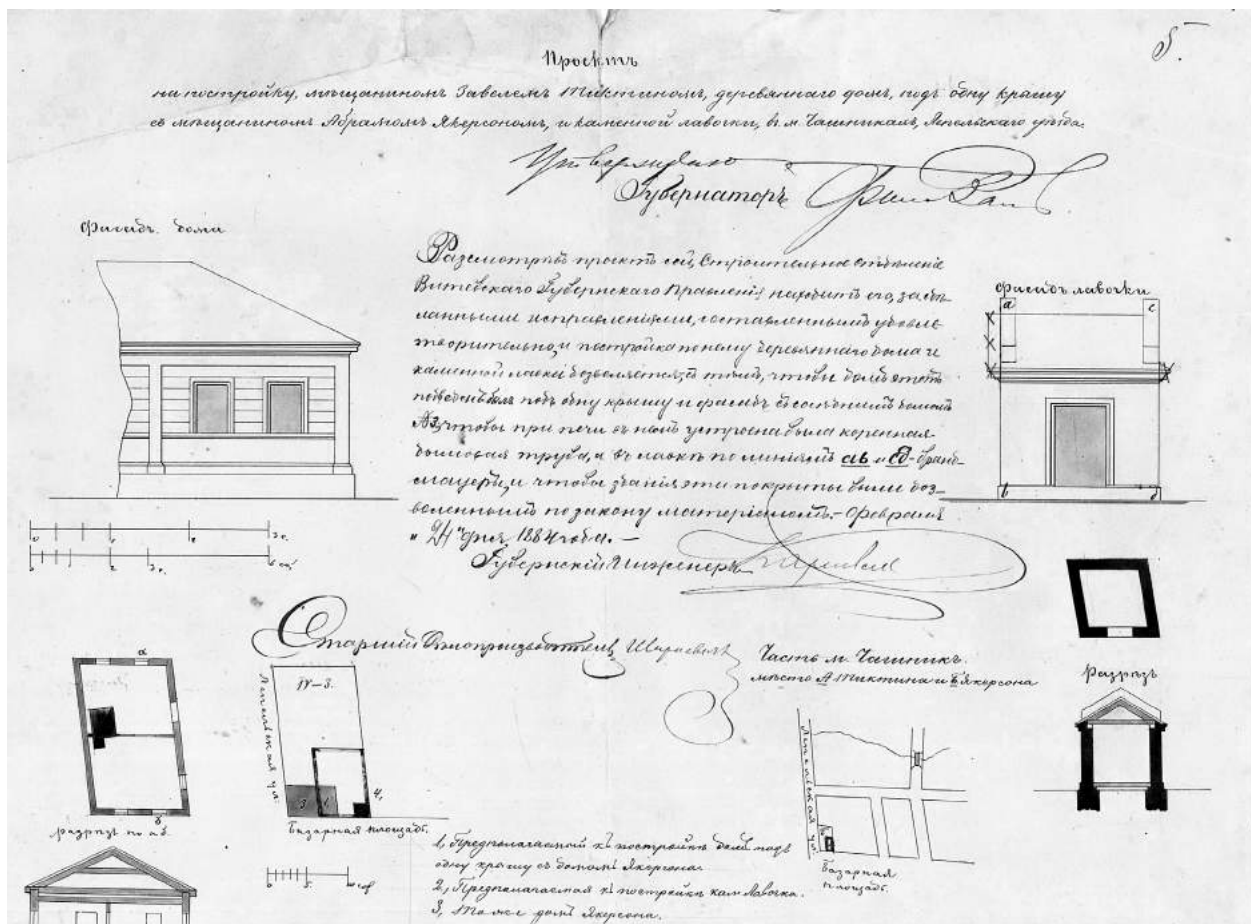 5.
Проектъ
на постройку, мѣщаниномъ Завелемъ Тиктиномъ, деревяннаго дома, подъ одну крышу
съ мѣщаниномъ Абрамомъ Якерсономъ, и каменной лавочки, въ м. Чашникахъ, Лепельскаго уѣзда.
Утверждаю
Губернаторъ
Фасадъ дома
Разсмотрѣвъ проектъ сей, Строительное Отдѣленіе
Витебскаго Губернскаго Правленія находитъ его, за сдѣ-
ланными исправленіями, составленнымъ удовле-
творительно, и постройка по нему деревяннаго дома и
каменной лавки дозволяется, съ тѣмъ, чтобы домъ этотъ
подъ одну крышу и фасадъ съ домомъ
№3, чтобы при печи въ немъ устроена была коренная
дымовая труба, а въ лавкѣ по линіямъ ab и cd - бранд-
мауеры, и чтобы зданія эти покрыты были доз-
воленнымъ по закону матеріаломъ. - Февраля
" 24 " дня 1884 года. -
Губернскій Инженеръ
фасадъ лавочки
a c
b d
Старшій Дѣлопроизводитель
Часть м. Чашникъ.
мѣсто А Тиктина и Б Якерсона
разрѣзъ
a
разрѣзъ по ab.
IV-3.
Лепельская ул.
3 1 4,
Базарная площадь.
Лепельская ул.
Базарная
площадь.
1, Предполагаемый къ постройкѣ домъ подъ
одну крышу съ домомъ Якерсона.
2, Предполагаемая къ постройкѣ кам. лавочка.
3, домъ Якерсона.